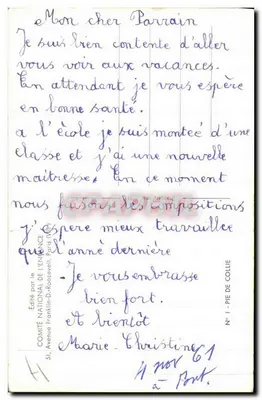 Mon cher Parrain
Je suis bien contente d'aller
vous voir aux vacances.
En attendant je vous espère
en bonne santé.
a l'école je suis monteé d'une
classe et j'ai une nouvelle
maitresse. En ce moment
nous faisons des compositions
j'espere mieux travailler
que l'anné dernière
Je vous embrasse
bien fort.
A bientôt
Marie-Christine
4 nov 61
à
Edité par le
COMITÉ NATIONAL DE L'ENFANCE
51, Avenue Franklin-D.-Roosevelt, Paris
N° 1 - PIE DE COLLIE